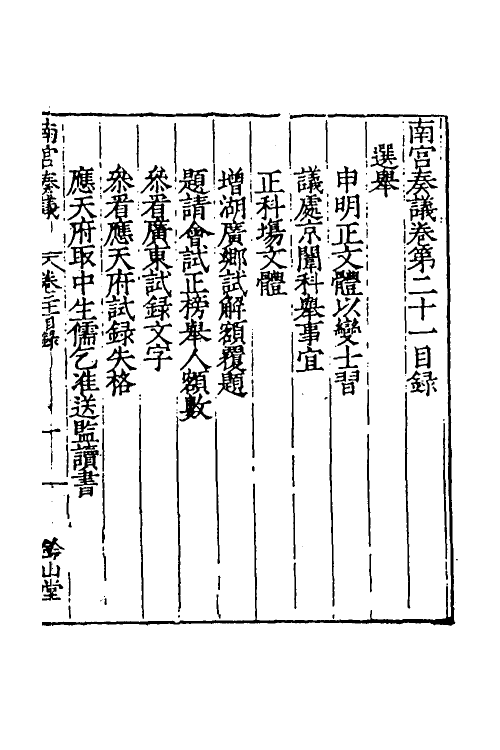 南宮奏議卷第二十一目録
選舉
申明正文體以變士習
議處京闈科舉事宜
正科塲文體
增湖廣鄉試解額覆題
題請會試正榜舉人額數
叅看廣東試録文字
叅看應天府試録失格
應天府取中生儒乞准送監讀書
南宮奏議
卷二十一目録
一
鈐山堂